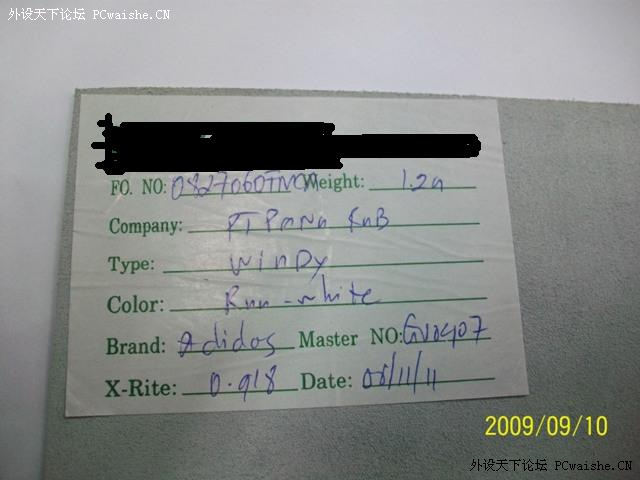 外设天下论坛 PCwaishe.CN
FO. NO: Weight: 1.2
Company: PT
Type: Windy
Color: Run-white
Brand: adidas Master NO:
X-Rite: 0.918 Date: 08/11/11
2009/09/10
外设天下论坛 PCwaishe.CN